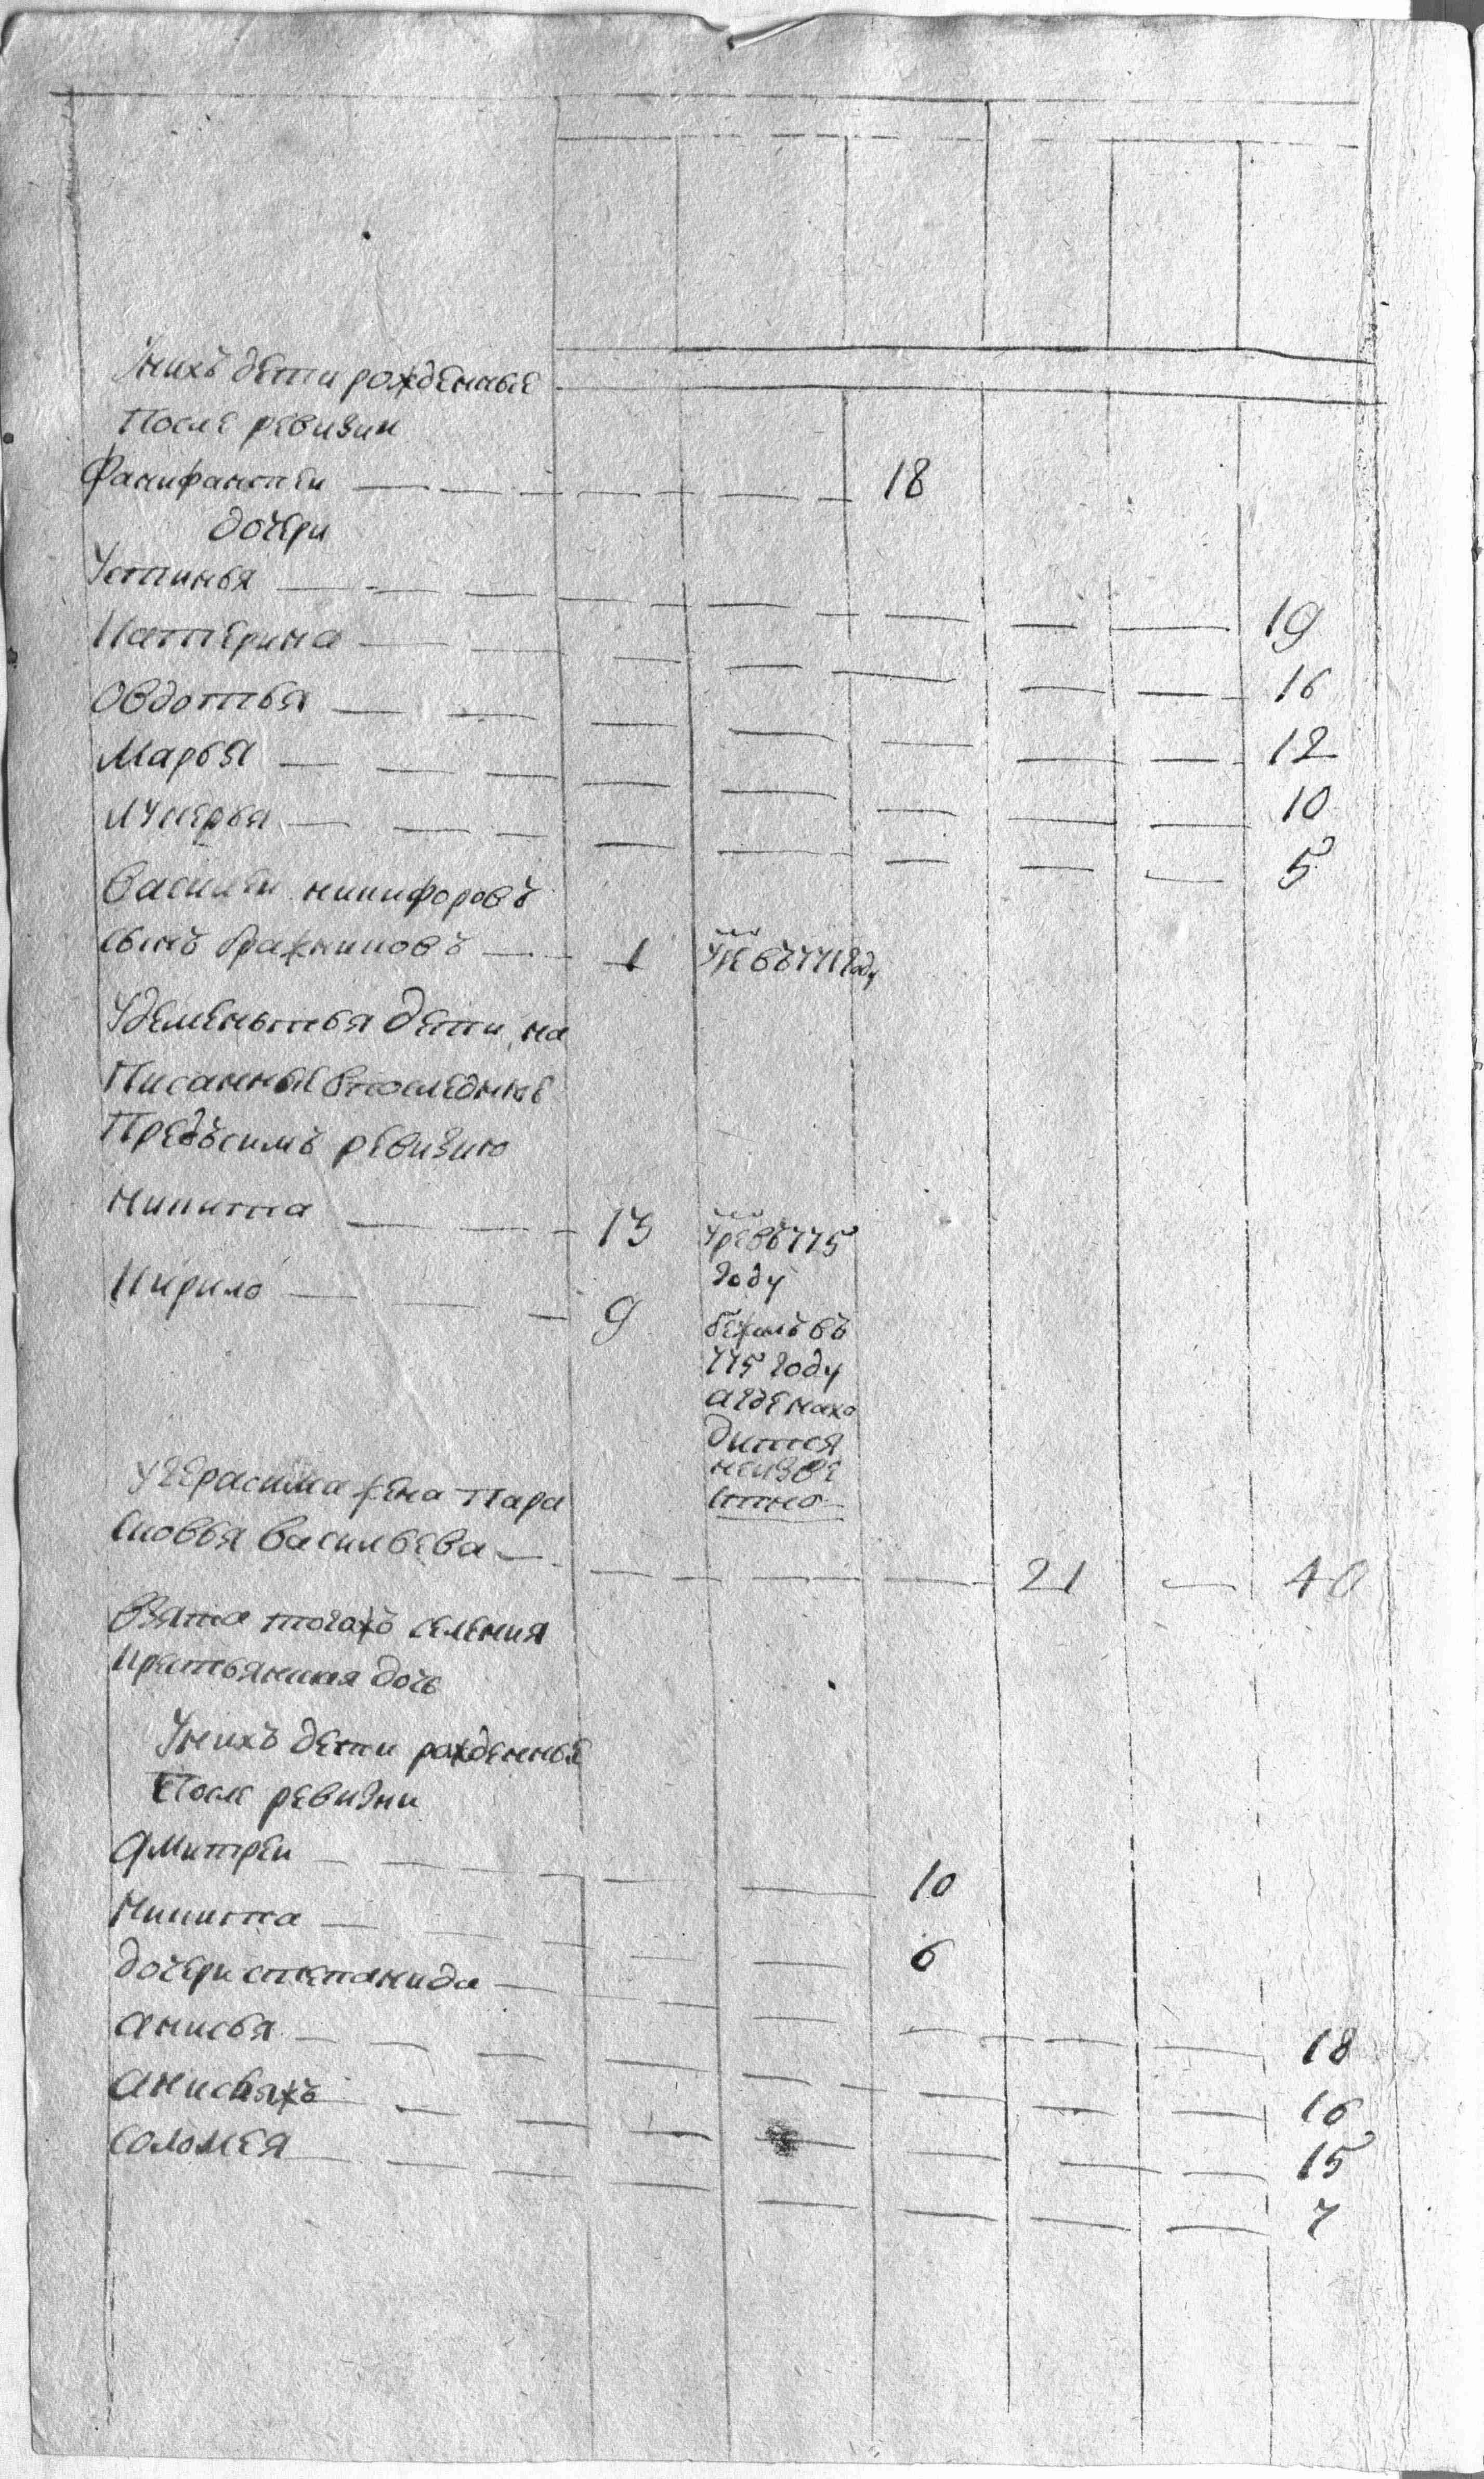 Унихъ дети рожденные
После ревизии
Фанифантеи 18
дочери
Устинья 19
Катерина 16
Овдотья 12
Марья 10
Лукерья 5
Василеи никифоровъ
сынъ бражниковъ 1 въ 771 году
дети на
Писанные впоследнюю
Предъсимъ ревизию
Никита 13 въ 775
году
Кирило 9 бежалъ въ
775 году
агде нахо
дится
неизве
стно
У герасима жена Пара
сковья васильева 21 40
Взята тогожъ селения
крестьянская дочь
Унихъ дети рожденные
После ревизии
Дмитреи 10
Никита 6
дочери степанида 18
анисья 16
анисьяжъ 15
соломея 7